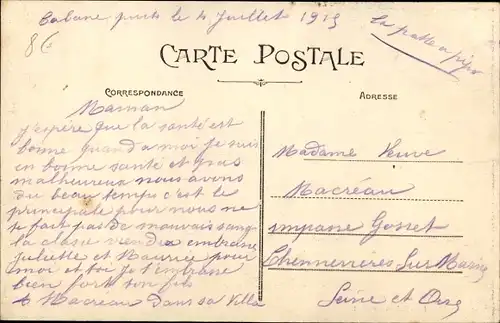 Cabane puits le 4 Juillet 1915
la patte a pipo
86
CARTE POSTALE
CORRESPONDANCE
ADRESSE
Maman
j'espère que la santé est
bonne quand a moi je suis
en bonne santé et pas
malheureux nous avons
du beau temps c'est le
principale pour nous ne
te fait pas de mauvais sang
la classe viendra embrasse
juliette et Maurice pour
moi et toi je t'embrasse
bien fort ton fils
Macréau dans sa Villa
Madame Veuve
Macréau
impasse Gosset
Chennevières Sur Marne
Seine et Oise